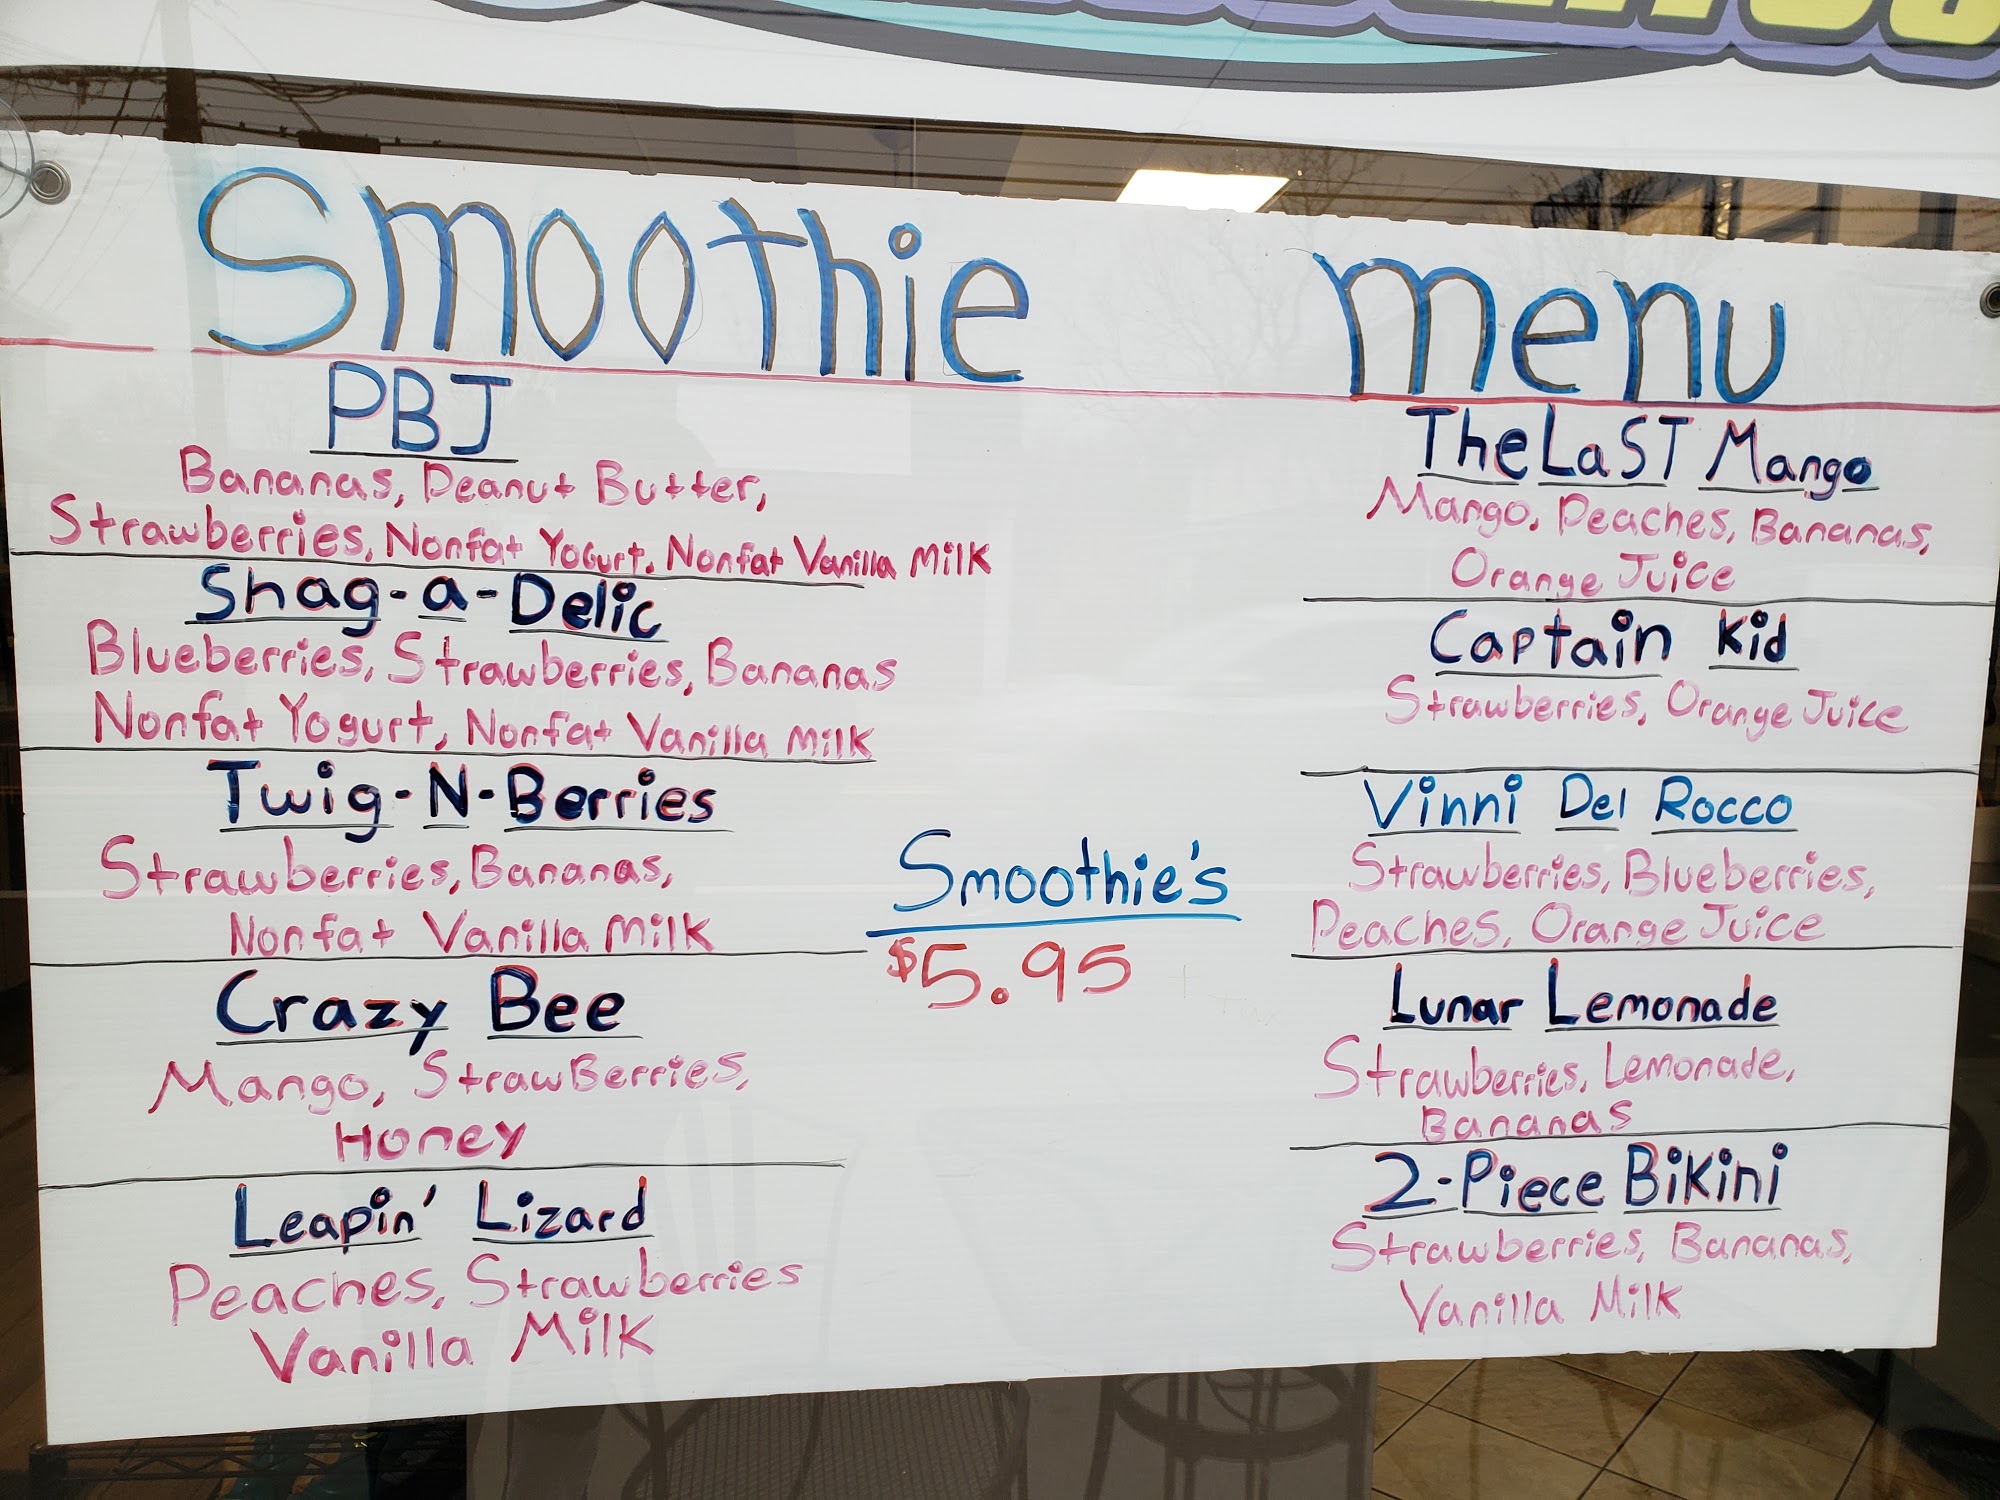 Smoothie menu
PBJ
Bananas, Peanut Butter,
Strawberries, Nonfat Yogurt, Nonfat Vanilla Milk
Shag-a-Delic
Blueberries, Strawberries, Bananas
Nonfat Yogurt, Nonfat Vanilla Milk
Twig-N-Berries
Strawberries, Bananas,
Nonfat Vanilla Milk
Crazy Bee
Mango, StrawBerries,
Honey
Leapin' Lizard
Peaches, Strawberries
Vanilla Milk
Smoothie's
$5.95
The LaST Mango
Mango, Peaches, Bananas,
Orange Juice
Captain Kid
Strawberries, Orange Juice
Vinni Del Rocco
Strawberries, Blueberries,
Peaches, Orange Juice
Lunar Lemonade
Strawberries, Lemonade,
Bananas
2-Piece Bikini
Strawberries, Bananas,
Vanilla Milk